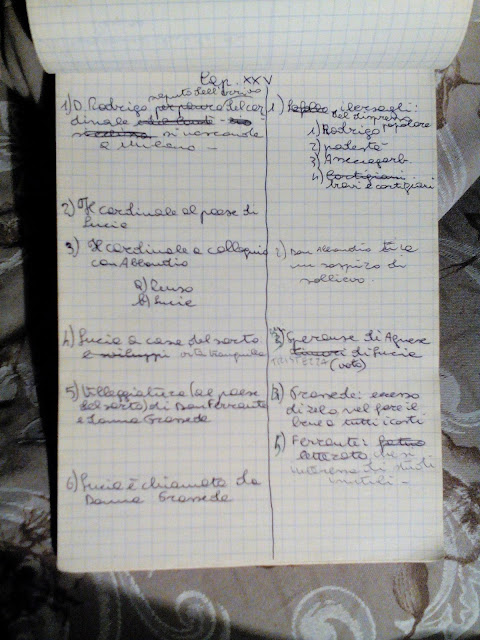 Cap. XXV
saputo dell'arrivo
1) D. Rodrigo per paura del car
dinale
si nasconde
a Milano -
2) Il cardinale al paese di
Lucia
3) Il cardinale a colloquio
con Abbondio
a) Renzo
b) Lucia
4) Lucia a casa del sarto
e sviluppi vita tranquilla
5) Villeggiatura (al paese
del sarto) di Don Ferrante
e Donna Prassede
6) Lucia è chiamata da
Donna Prassede
1) i bersagli:
del disprezzo
popolare
1) Rodrigo
2) podestà
3) Azzeccagarb
4) Cortigiani
bravi e cortigiani
2) Don Abbondio tira
un sospiro di
sollievo.
3) Speranze di Agnese
di Lucia
TRISTEZZA (voto)
4) Prassede: eccesso
di zelo nel fare il
bene a tutti i costi
5) Ferrante:
letterato che si
interessa di studi
inutili -